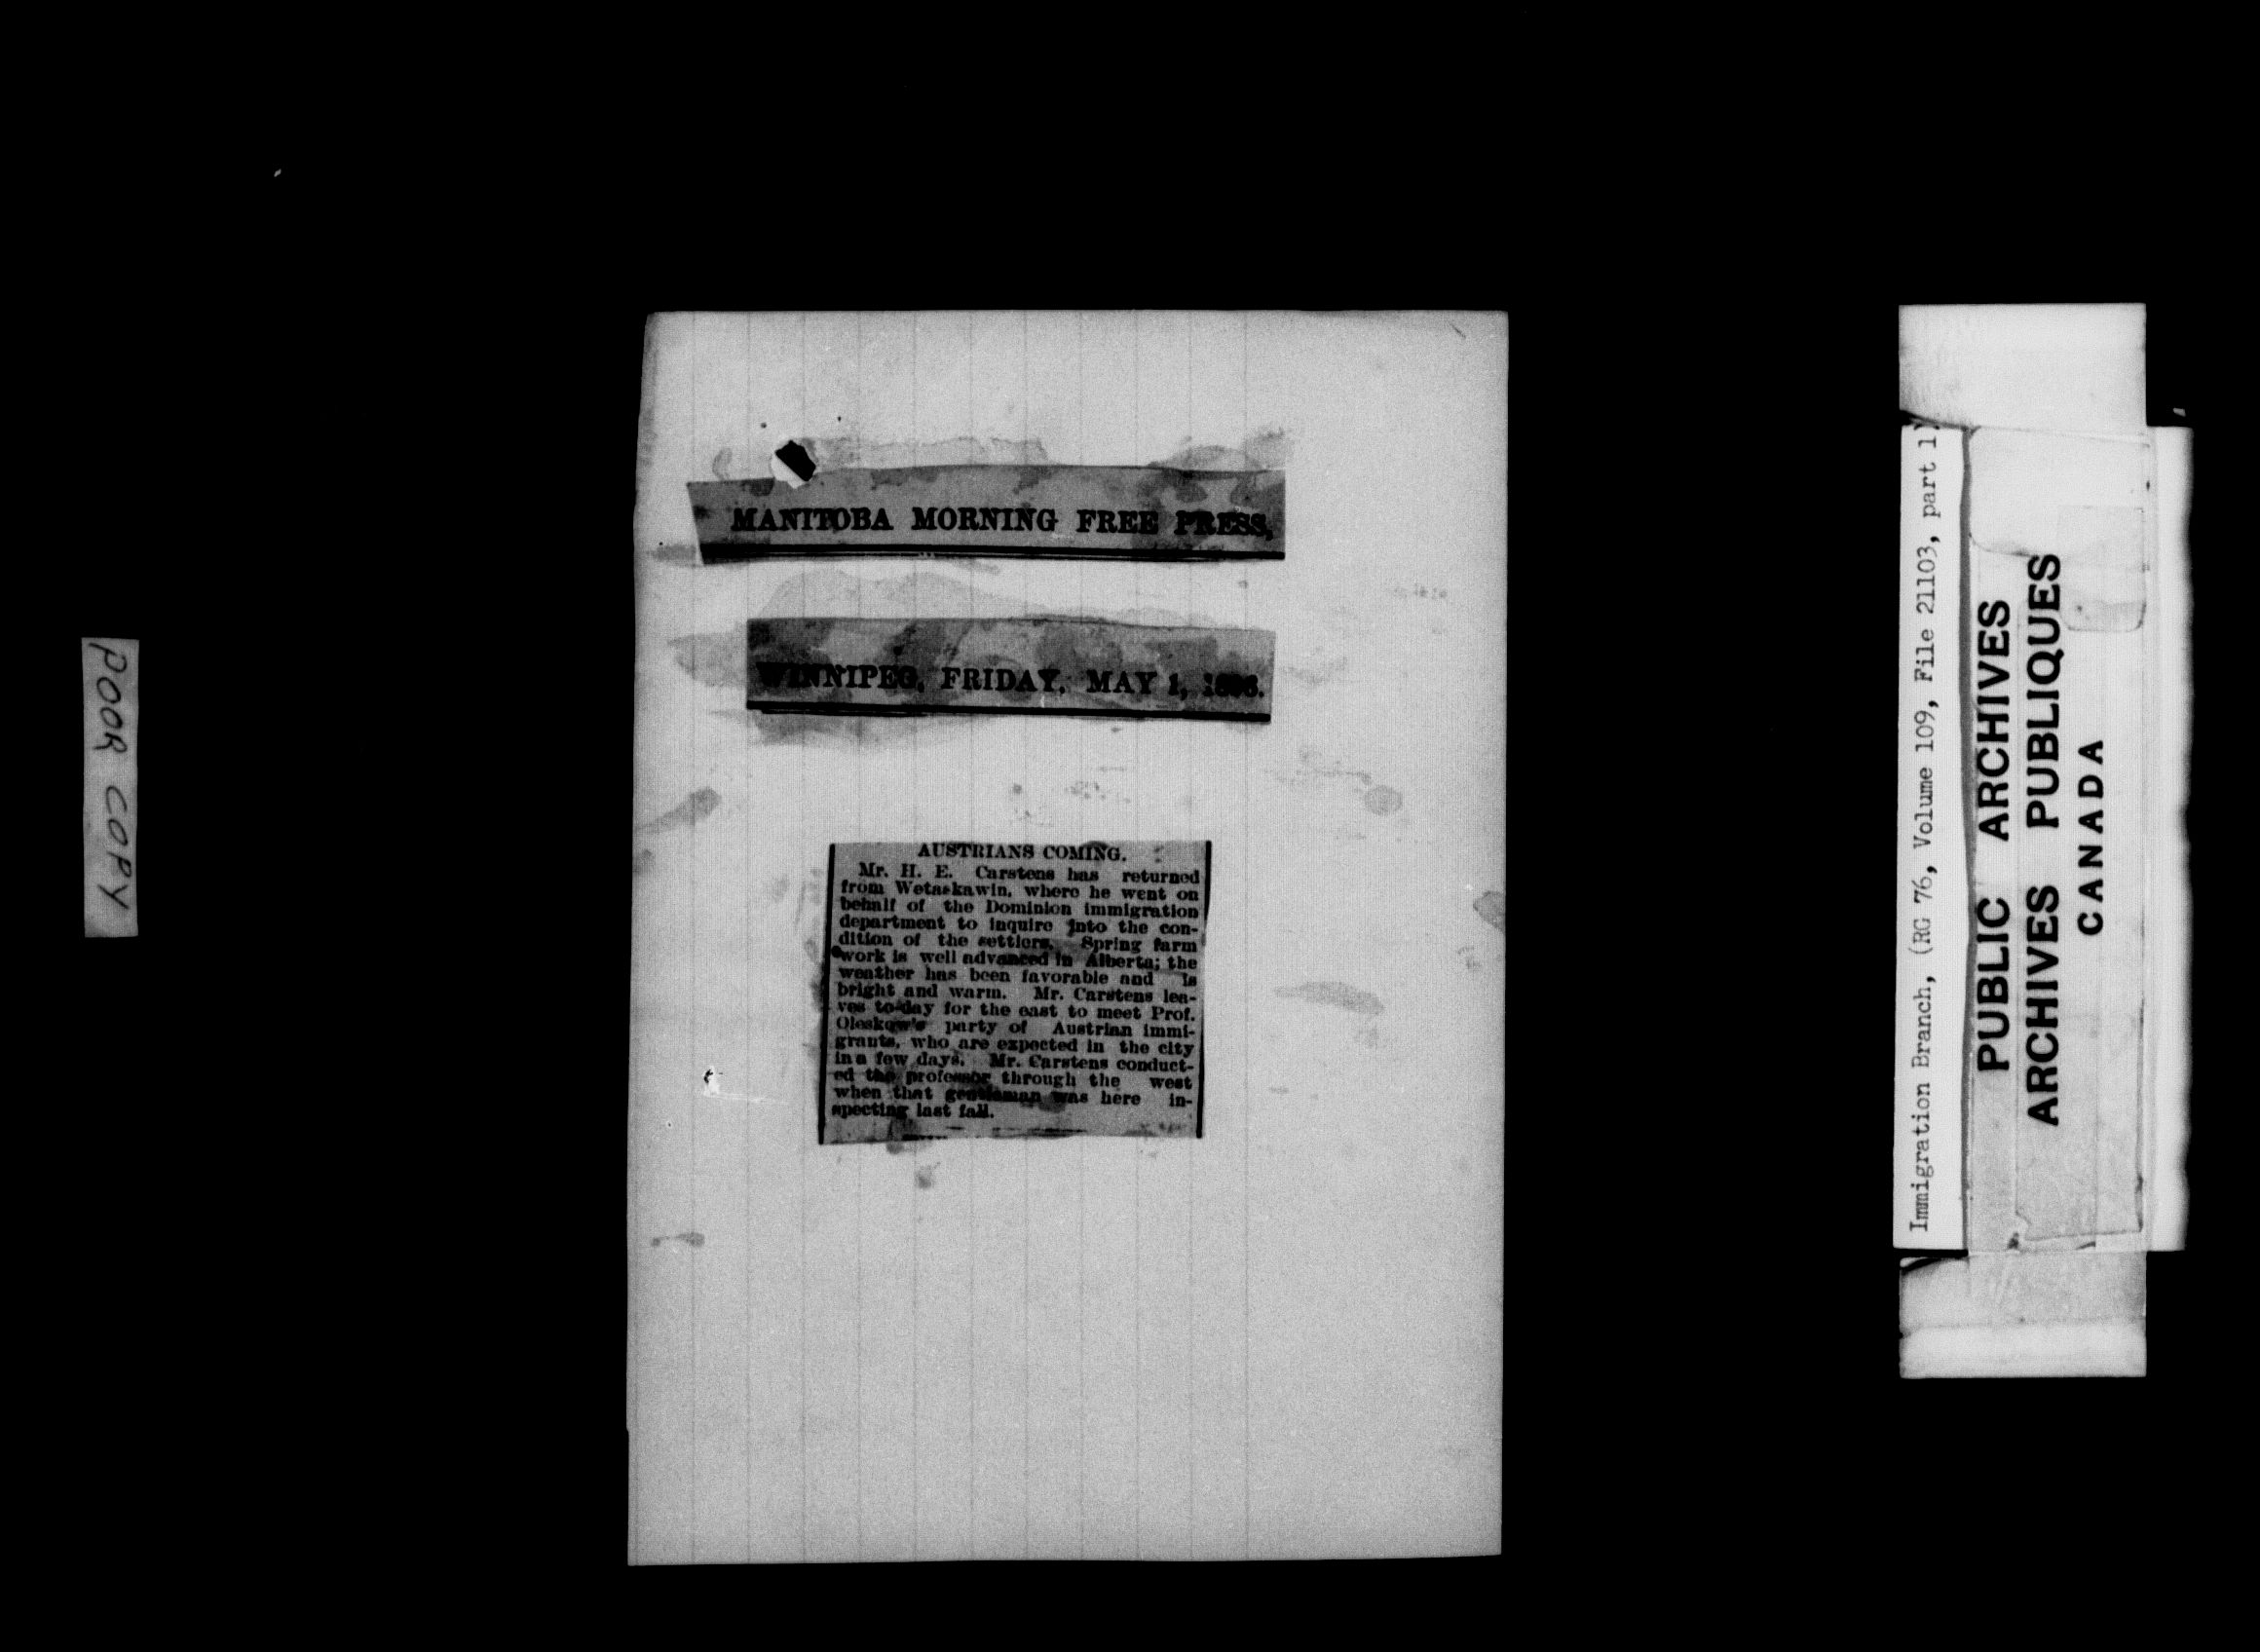 POOR COPY
MANITOBA MORNING FREE PRESS,
WINNIPEG, FRIDAY, MAY 1, 1896.
AUSTRIANS COMING.
Mr. H. E. Carstens has returned
from Wetaskawin, where he went on
behalf of the Dominion immigration
department to inquire into the con-
dition of the settlers. Spring farm
work is well advanced in Alberta; the
weather has been favorable and is
bright and warm. Mr. Carstens lea-
ves to-day for the east to meet Prof.
Oleskow's party of Austrian immi-
grants, who are expected in the city
in a few days. Mr. Carstens conduct-
ed the professor through the west
when that gentleman was here in-
specting last fall.
Immigration Branch, (RG 76, Volume 109, File 21103, part 1)
PUBLIC ARCHIVES
ARCHIVES PUBLIQUES
CANADA